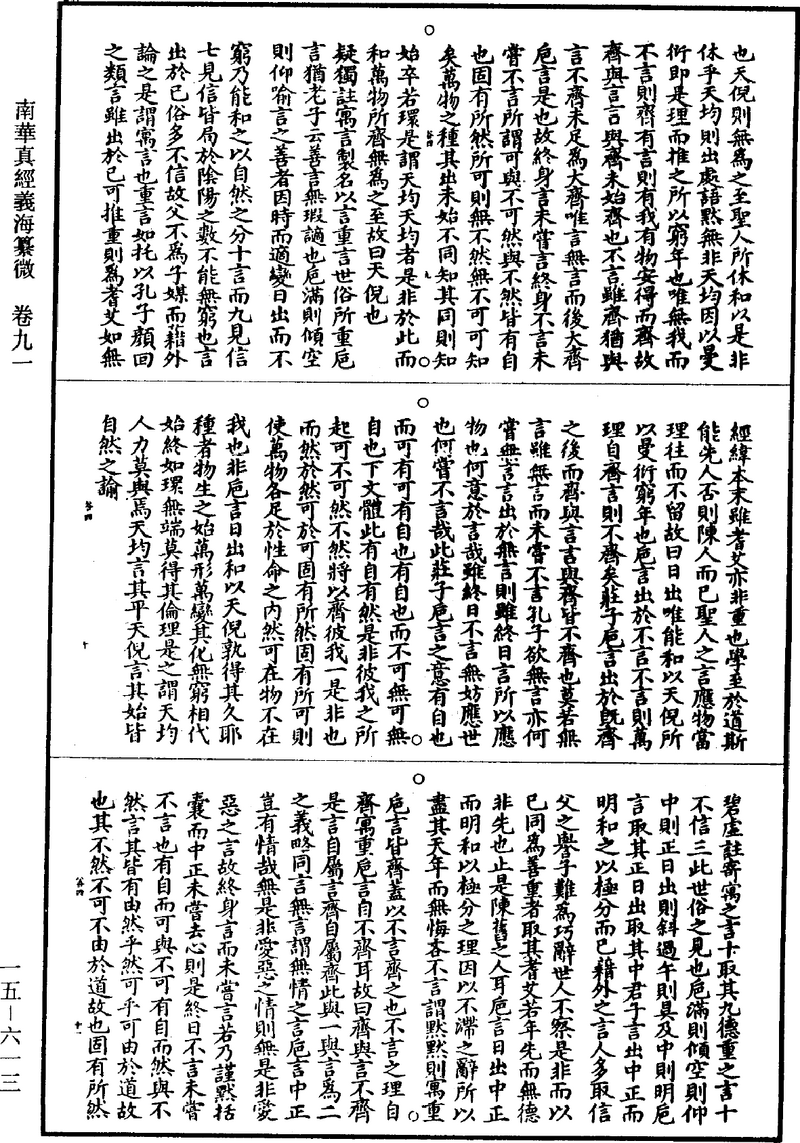 南華真經義海纂微 卷九一
也天倪則無為之至聖人所休和以是非
休乎天均則出處語默無非天均因以曼
衍即是理而推之所以窮年也唯無我而
不言則齊有言則有我有物安得而齊故
齊與言言與齊未始齊也不言雖齊猶與
言不齊未足為大齊唯言無言而後大齊
巵言是也故終身言未嘗言終身不言未
嘗不言所謂可與不可然與不然皆有自
也固有所然所可則無不然無不可可知
矣萬物之種其出未始不同知其同則知
始卒若環是謂天均天均者是非於此而
和萬物所齊無為之至故曰天倪也
疑獨註寓言製名以言重言世俗所重巵
言猶老子云善言無瑕讁也巵滿則傾空
則仰喻言之善者因時而適變日出而不
窮乃能和之以自然之分十言而九見信
七見信皆局於陰陽之數不能無窮也言
出於己俗多不信故父不為子媒而藉外
論之是謂寓言也重言如托以孔子顏回
之類言雖出於已可推重則為耆艾如無
經緯本末雖耆艾亦非重也學至於道斯
能先人否則陳人而已聖人之言應物當
理往而不留故曰日出唯能和以天倪所
以曼衍窮年也巵言出於不言不言則萬
理自齊言則不齊矣莊子巵言出於旣齊
之後而齊與言言與齊皆不齊也莫若無
言雖無言而未嘗不言孔子欲無言亦何
嘗無言言出於無言則雖終日言所以應
物也何意於言哉雖終日不言無妨應世
也何嘗不言哉此莊子巵言之意有自也
而可有可有自也有自也而不可無可無
自也下文體此有自有然是非彼我之所
起可不可然不然將以齊彼我一是非也
而然於然可於可固有所然固有所可則
使萬物各足於性命之內然可在物不在
我也非巵言日出和以天倪孰得其久耶
種者物生之始萬形萬變其化無窮相代
始終如環無端莫得其倫理是之謂天均
人力莫與焉天均言其平天倪言其始皆
自然之諭
碧虛註寄寓之言十取其九德重之言十
不信三此世俗之見也巵滿則傾空則仰
中則正日出則斜過午則具及中則明巵
言取其正日出取其中君子言出中正而
明和之以極分而已藉外之言人多取信
父之譽子難為巧辭世人不察是非而以
已同為善重者取其耆艾若年先而無德
非先也止是陳舊之人耳巵言日出中正
而明和以極分之理因以不滯之辭所以
盡其天年而無悔吝不言謂默默則寓重
巵言皆齊蓋以不言齊之也不言之理自
齊寓重巵言自不齊耳故曰齊與言不齊
是言自屬言齊自屬齊此與一與言為二
之義略同言無言謂無情之言巵言中正
豈有情哉無是非愛惡之情則無是非愛
惡之言故終身言而未嘗言若乃謹默括
囊而中正未嘗去心則是終日不言未嘗
不言也有自而可與不可有自而然與不
然言其皆有由然乎然可乎可由於道故
也其不然不可不由於道故也固有所然
一五－六一三